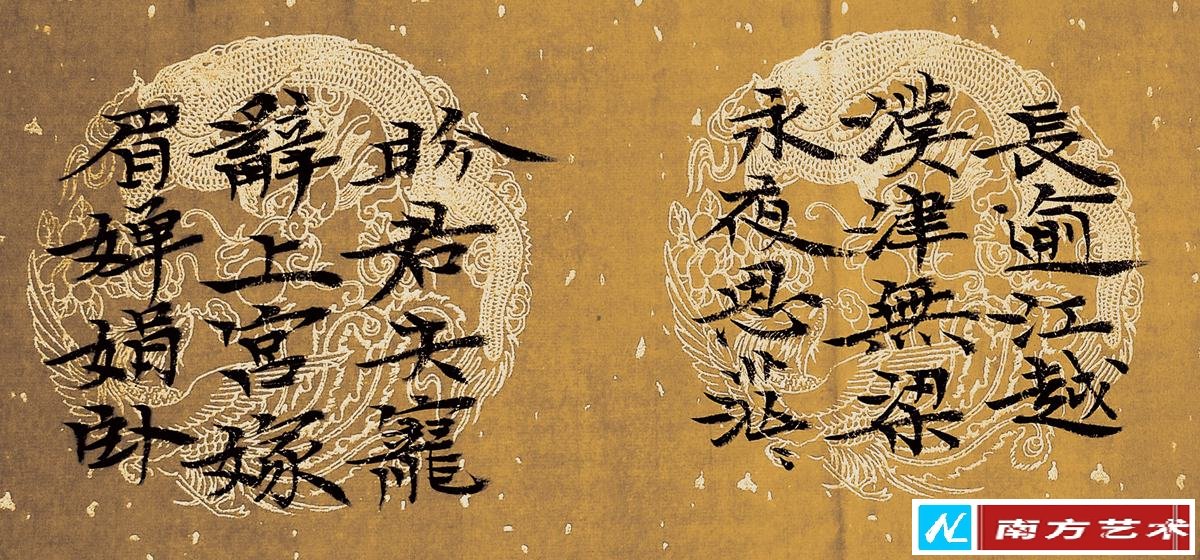 長逾江越
漢津無梁
永夜思
君寵
辭上宮嫁
眉嬋娟卧
南方艺术